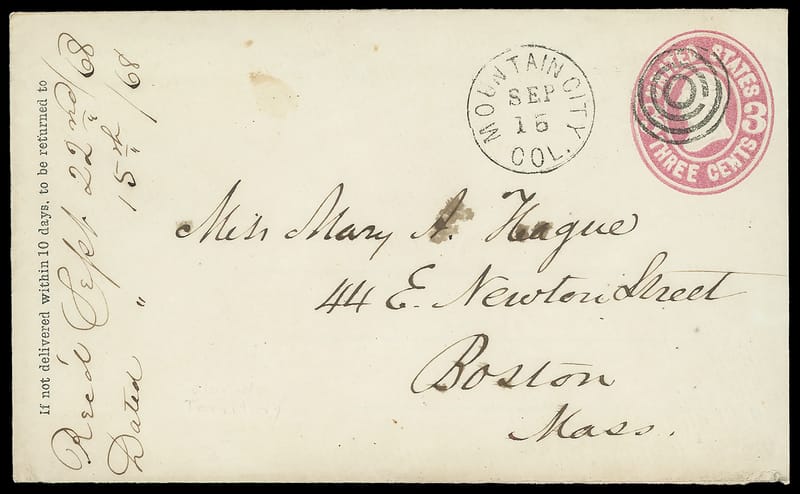 If not delivered within 10 days, to be returned to
Rec'd Sept. 22nd/68
Dated " 15th/68
MOUNTAIN CITY,
SEP
15
COL.
UNITED STATES
3
THREE CENTS
Miss Mary A. Hague
44 E. Newton Street
Boston
Mass.